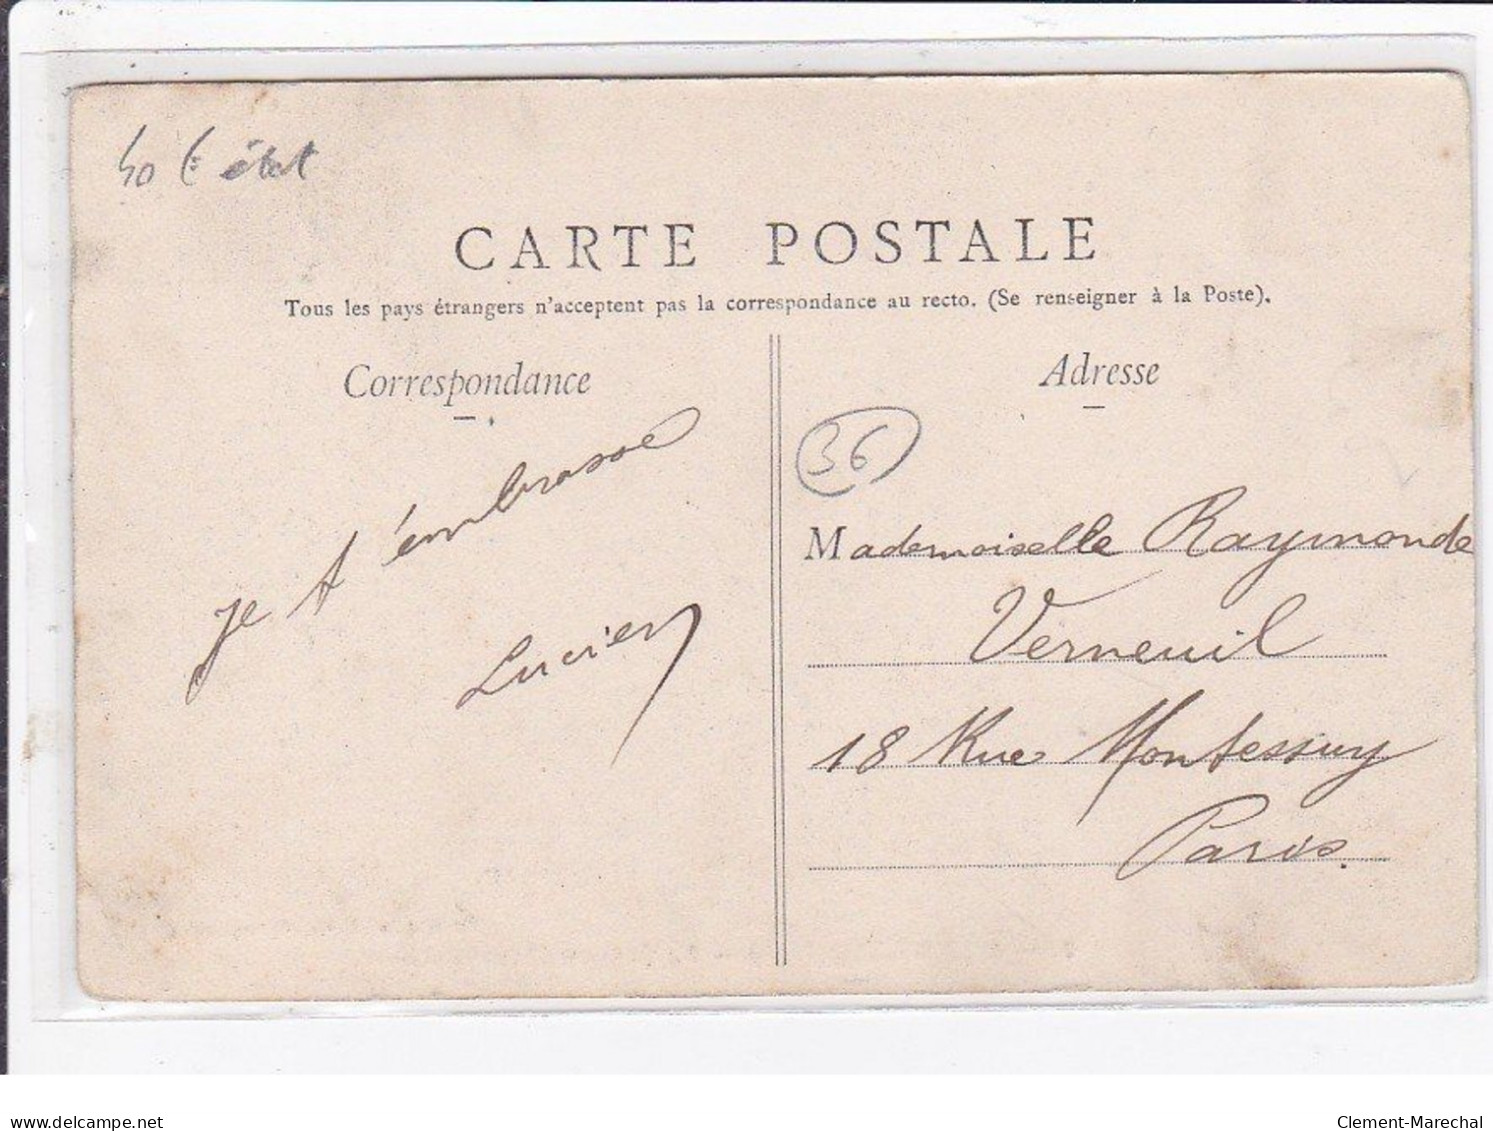 40 € état
CARTE POSTALE
Tous les pays étrangers n'acceptent pas la correspondance au recto. (Se renseigner à la Poste).
Correspondance
Adresse
36
je t'embrasse
Lucien
Mademoiselle Raymonde
Verneuil
18 Rue Montessuy
Paris.
delcampe.net
Clement-Marechal